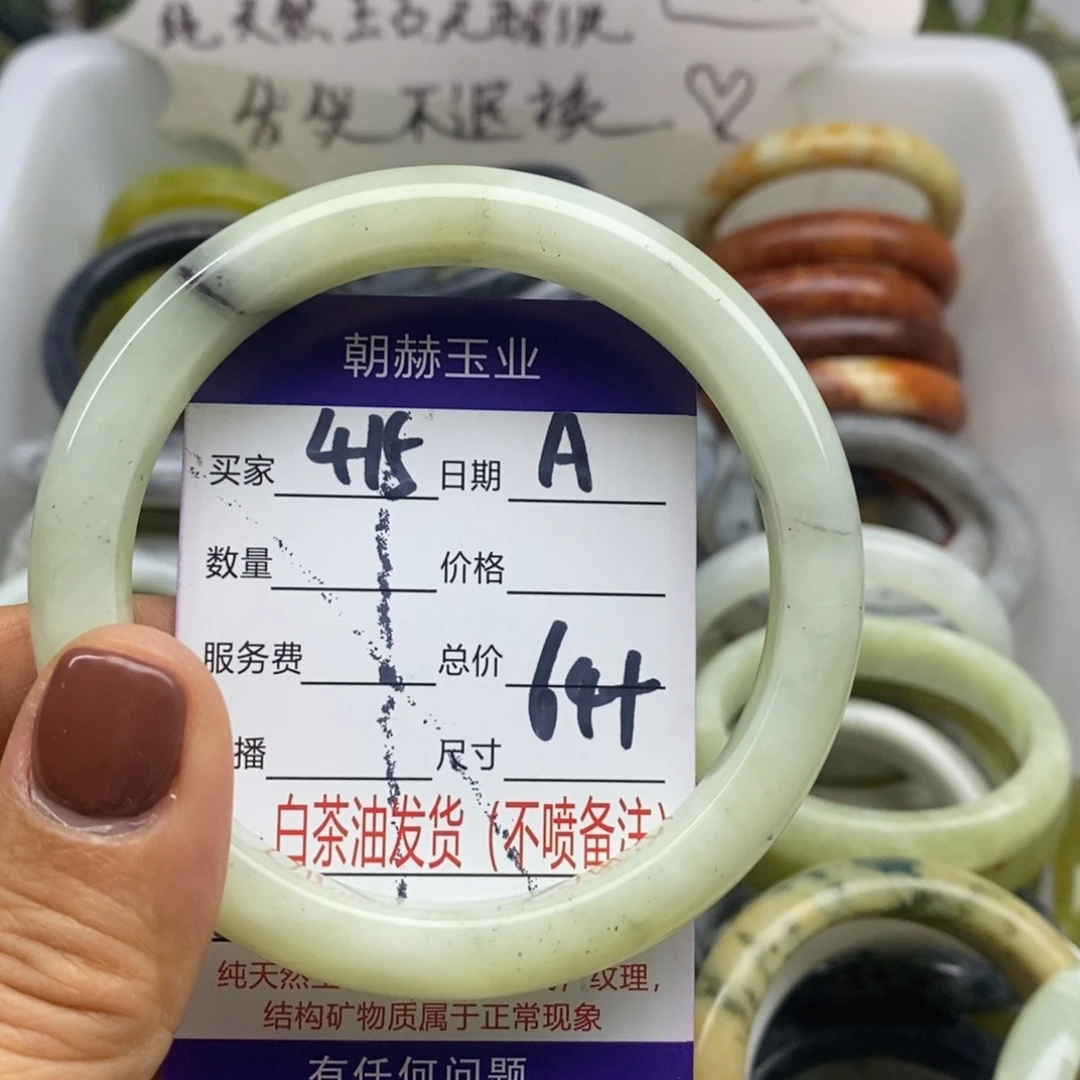 纯天然玉石无酸洗
售出不退换
朝赫玉业
买家 415 日期 A
数量 价格
服务费 总价 64+
播 尺寸
白茶油发货（不喷备注）
纯天然 纹理，
结构矿物质属于正常现象
有任何问题